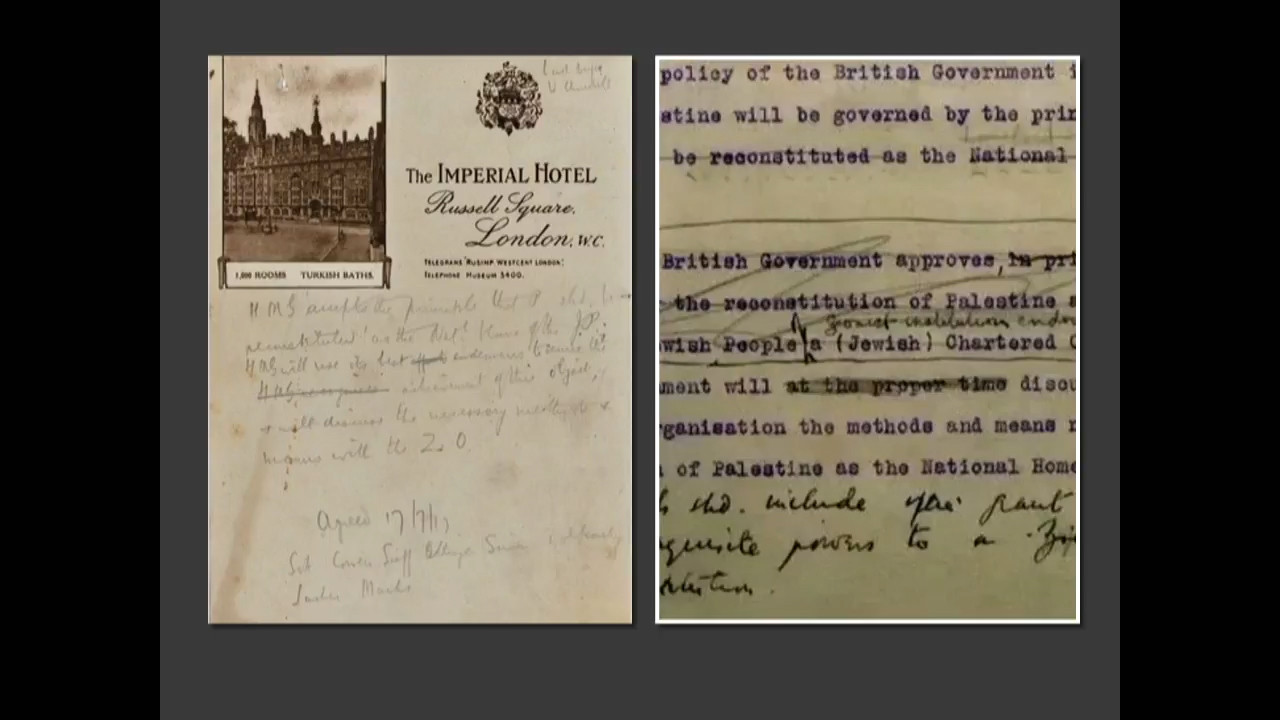 1,000 ROOMS TURKISH BATHS.
The IMPERIAL HOTEL
Russell Square,
London, W.C.
TELEGRAMS "RUSIMP WESTCENT LONDON".
TELEPHONE MUSEUM 3400.
HMG accepts the principle that P. shd. be
reconstituted as the Natl. Home of the J.P.
HMG will use its best endeavours to secure the
HMG recognises achievement of this object,
& will discuss the necessary methods &
means with the Z.O.
Agreed 17/7/17
Sieff Simon
Leader Marks
policy of the British Government i
stine will be governed by the prin
be reconstituted as the National
British Government approves, in pri
the reconstitution of Palestine a
Zionist institution endow
wish People a (Jewish) Chartered C
ment will at the proper time discu
rganisation the methods and means n
of Palestine as the National Home
shd. include the grant
quisite powers to a